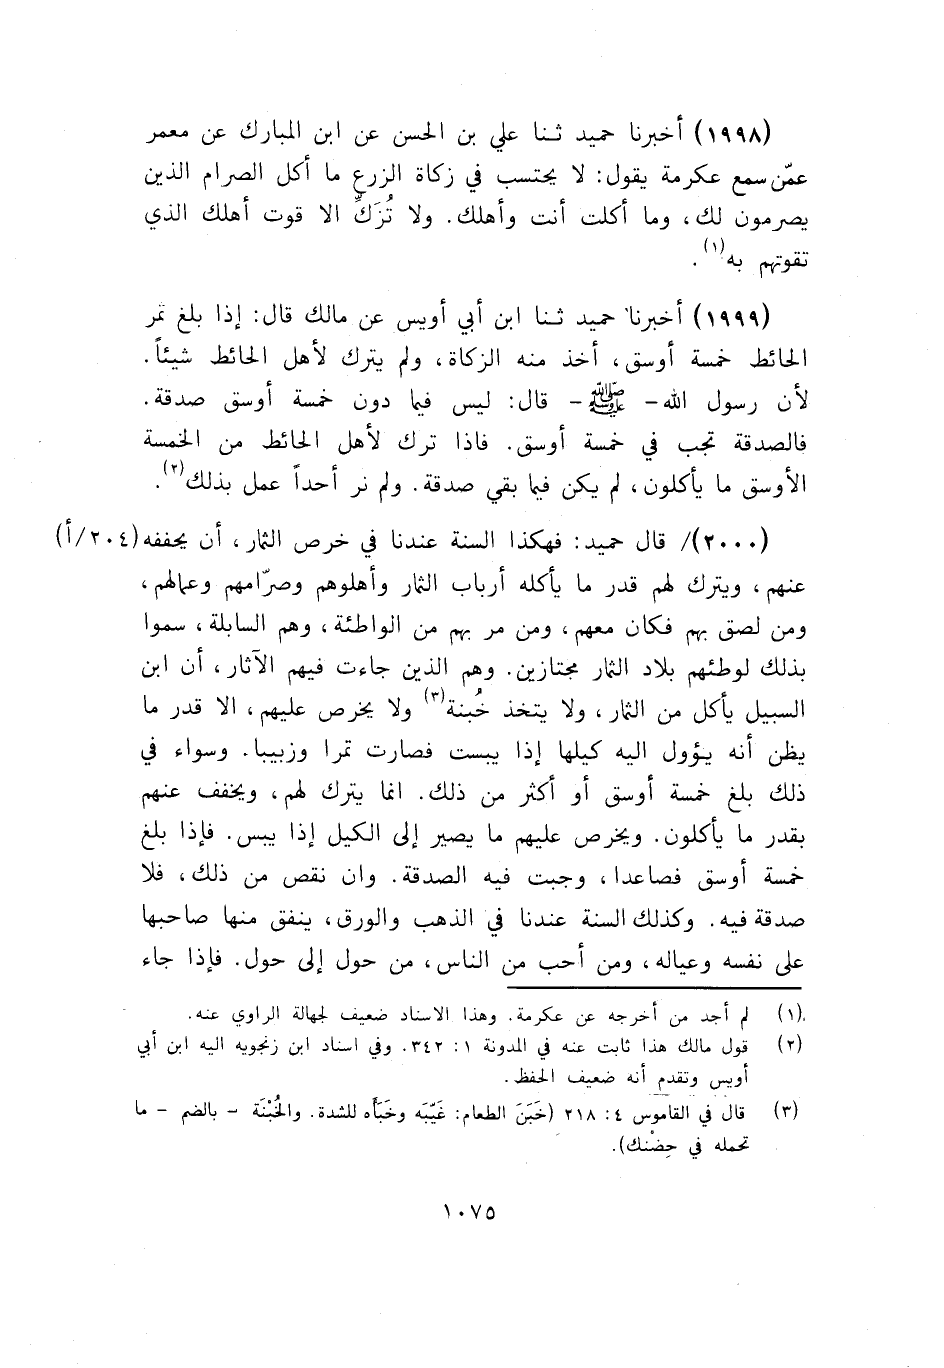 (١٩٩٨) أخبرنا حميد ثنا علي بن الحسن عن ابن المبارك عن معمر
عمّن سمع عكرمة يقول: لا يحتسب في زكاة الزرع ما أكل الصرام الذين
يصرمون لك، وما أكلت أنت وأهلك. ولا تُزَكِّ الا قوت أهلك الذي
تقوتهم به(١).
(١٩٩٩) أخبرنا حميد ثنا ابن أبي أويس عن مالك قال: إذا بلغ ثمر
الحائط خمسة أوسق، أخذ منه الزكاة، ولم يترك لأهل الحائط شيئاً.
لأن رسول الله- ﷺ- قال: ليس فيما دون خمسة أوسق صدقة.
فالصدقة تجب في خمسة أوسق. فاذا ترك لأهل الحائط من الخمسة
الأوسق ما يأكلون، لم يكن فيما بقي صدقة. ولم نر أحداً عمل بذلك(٢).
(٢٠٠٠)/ قال حميد: فهكذا السنة عندنا في خرص الثمار، أن يخففه (٢٠٤/أ)
عنهم، ويترك لهم قدر ما يأكله أرباب الثمار وأهلوهم وصرّامهم وعمالهم،
ومن لصق بهم فكان معهم، ومن مر بهم من الواطئة، وهم السابلة، سموا
بذلك لوطئهم بلاد الثمار مجتازين. وهم الذين جاءت فيهم الآثار، أن ابن
السبيل يأكل من الثمار، ولا يتخذ خُبنة(٣) ولا يخرص عليهم، الا قدر ما
يظن أنه يؤول اليه كيلها إذا يبست فصارت تمرا وزبيبا. وسواء في
ذلك بلغ خمسة أوسق أو أكثر من ذلك. انما يترك لهم، ويخفف عنهم
بقدر ما يأكلون. ويخرص عليهم ما يصير إلى الكيل إذا يبس. فإذا بلغ
خمسة أوسق فصاعدا، وجبت فيه الصدقة. وان نقص من ذلك، فلا
صدقة فيه. وكذلك السنة عندنا في الذهب والورق، ينفق منها صاحبها
على نفسه وعياله، ومن أحب من الناس، من حول إلى حول. فإذا جاء
(١) لم أجد من أخرجه عن عكرمة. وهذا الاسناد ضعيف لجهالة الراوي عنه.
(٢) قول مالك هذا ثابت عنه في المدونة ١: ٣٤٢. وفي اسناد ابن زنجويه اليه ابن أبي
أويس وتقدم أنه ضعيف الحفظ.
(٣) قال في القاموس ٤: ٢١٨ (خَبَنَ الطعام: غَيّبَه وخَبَأه للشدة. والخُبْنَة - بالضم - ما
تحمله في حِضْنك).
١٠٧٥